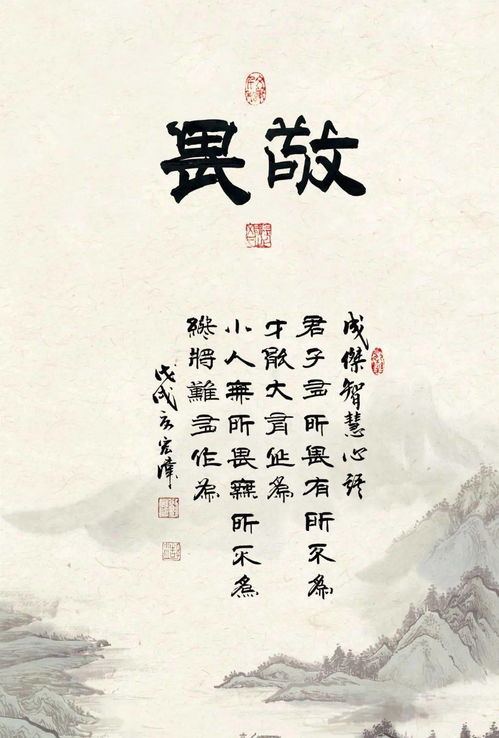 敬畏
成傑智慧心語
君子有所畏有所不為
才敢大有作為
小人無所畏無所不為
終將難有作為
戊戌宏偉